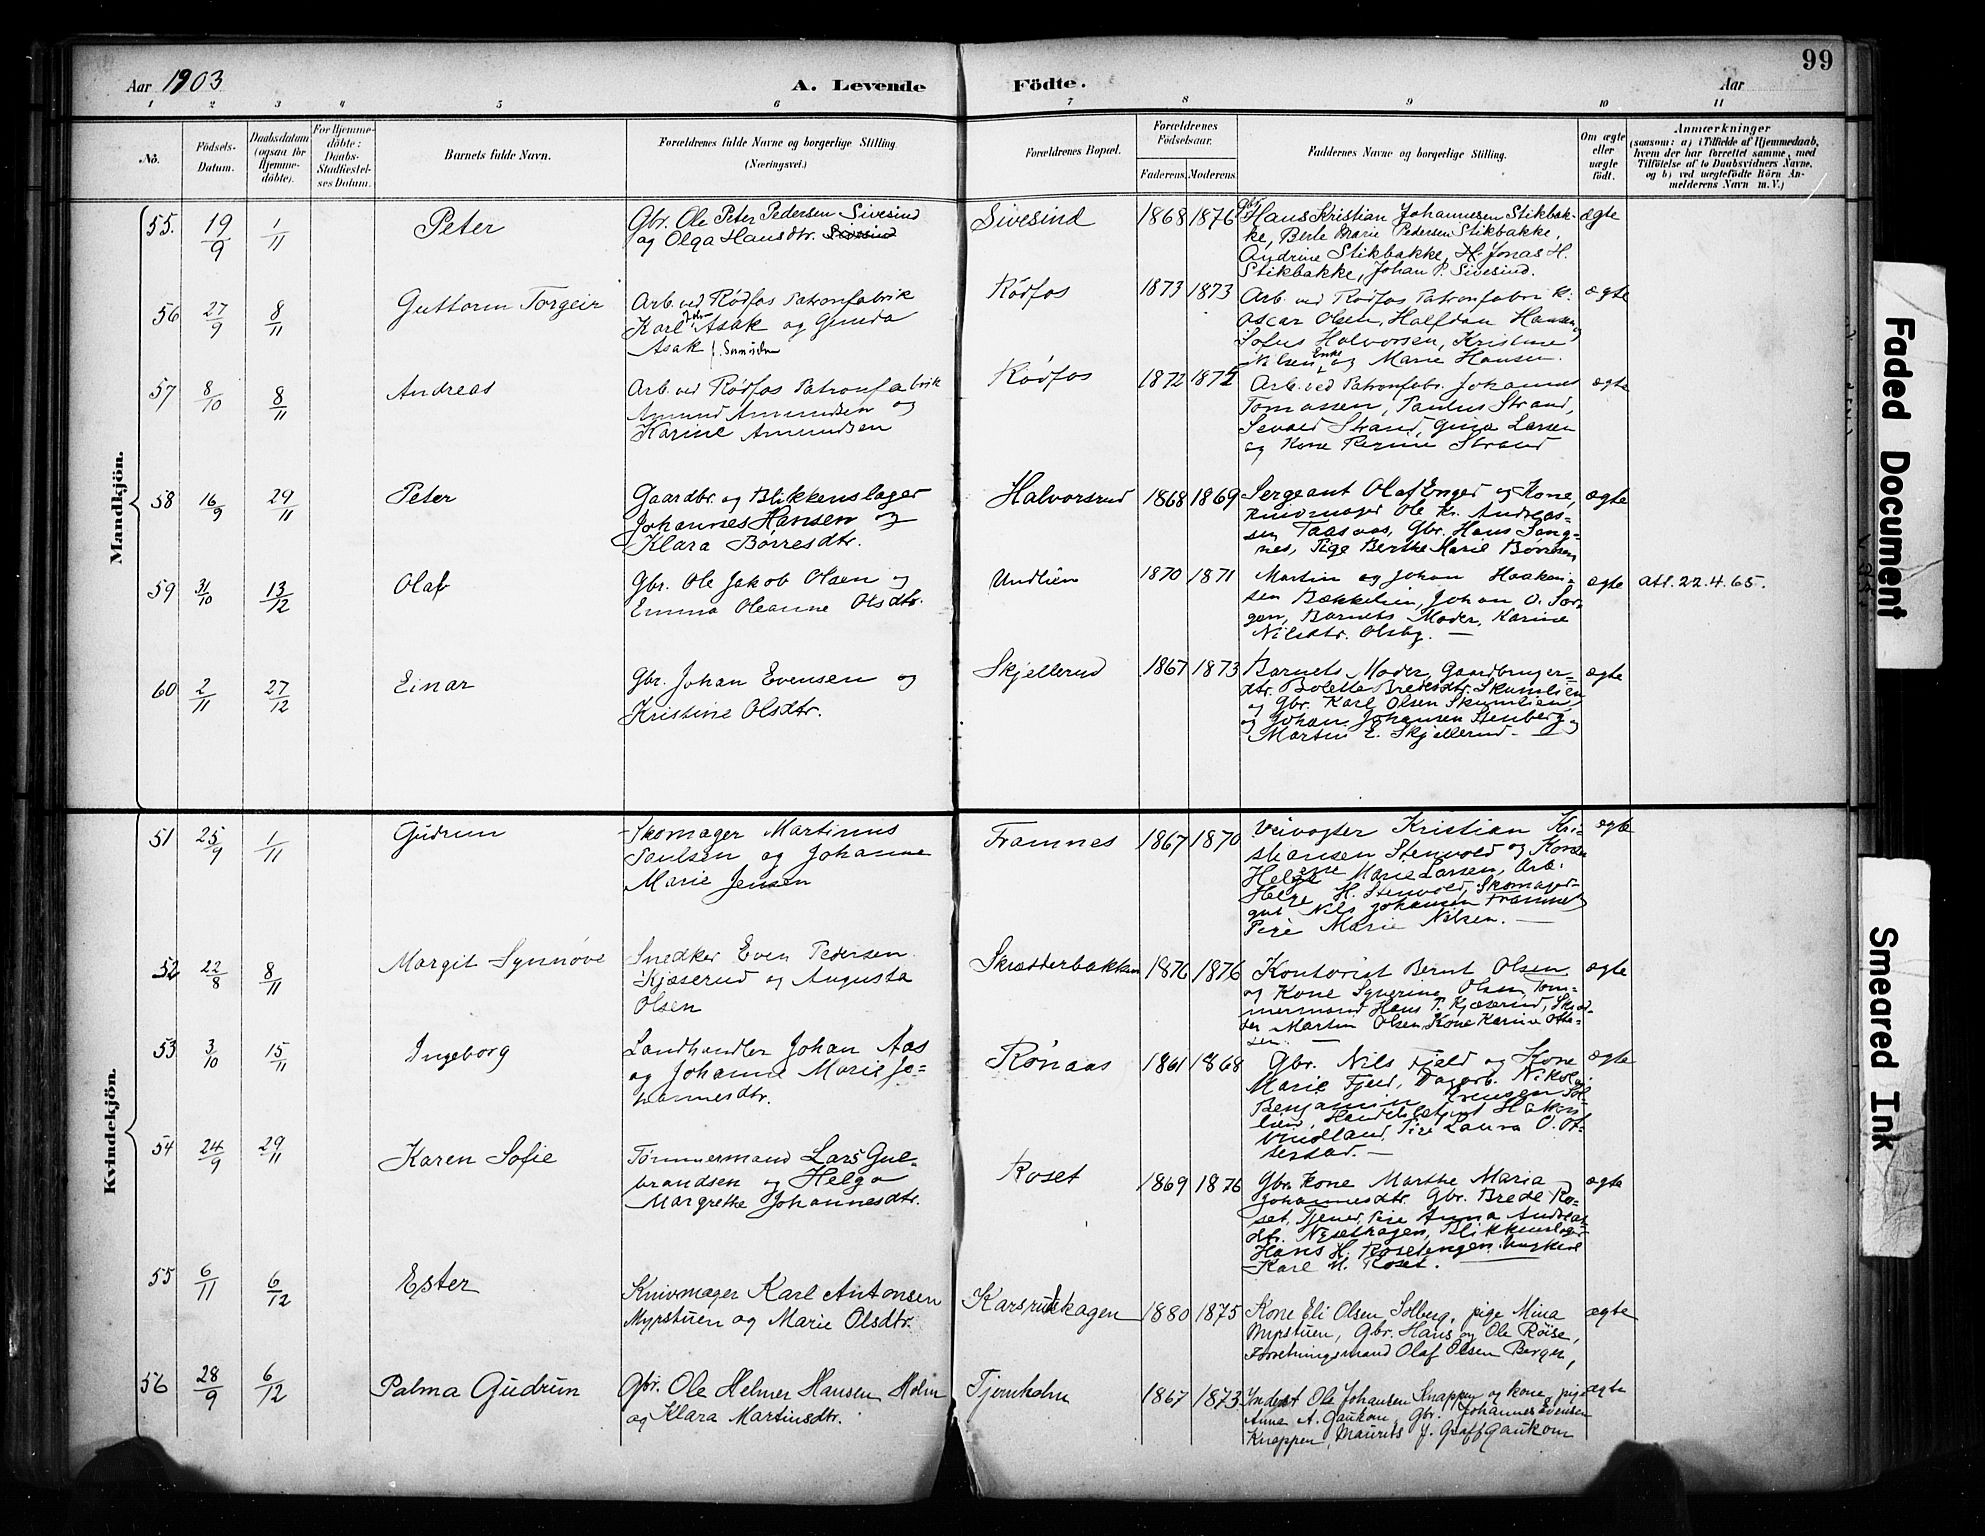 99
Aar 1903
A. Levende Födte.
Aar
1 2 3 4 5 6 7 8 9 10 11
No.
Födsels-Datum.
Daabsdatum (ogsaa for Hjemme-döbte).
For Hjemme-döbte: Daabs-Stadfæstel-ses Datum.
Barnets fulde Navn.
Forældrenes fulde Navne og borgerlige Stilling.
(Næringsvei.)
Forældrenes Bopæl.
Forældrenes Födselsaar.
Faderens. Moderens.
Faddernes Navne og borgerlige Stilling.
Om ægte eller uægte födt.
Anmærkninger
(saasom: a) i Tilfælde af Hjemmedaab,
hvem der har forrettet samme, med
Tilföielse af to Daabsvidners Navne,
og b) ved uægtefödte Börn An-
melderens Navn m. V.)
Mandkjön.
55. 19/9 1/11 Peter
Gbr. Ole Peter Pedersen Sivesind
og Olga Hansdtr. Sivesind
Sivesind 1868 1876
Gbr. Hans Kristian Johannesen Stikbak-
ke, Berte Marie Pedersen Stikbakke,
Andrine Stikbakke, H. Jonas H.
Stikbakke, Johan P. Sivesind.
ægte
56 27/9 8/11 Guttorm Torgeir
Arb. ved Rødfos Patronfabrik
Karl Joh. Asak og Gunda
Asak f.
Rødfos 1873 1873
Arb. ved Rødfos Patronfabrik.
Oscar Olsen, Halfdan Hansen,
Sofus Halvorsen, Kristine
Nilsen, Enke og Marie Hansen.
ægte
57 8/10 8/11 Andreas
Arb. ved Rødfos Patronfabrik
Amund Amundsen og
Karine Amundsen
Rødfos 1872 1875
Arb. ved Patronfabr. Johannes
Tomassen, Paulus Strand,
Sevald Strand, Gina Larsen
og Kone Perine Strand
ægte
58 16/9 29/11 Peter
Gaardbr. og Blikkenslager
Johannes Hansen og
Klara Børresdtr.
Halvorsrud 1868 1869
Sergeant Olaf Enger og Kone,
Knivmager Ole Kr. Andreas-
sen Taasaas, Gbr. Hans Sang-
nes, Pige Berthe Marie Børresen
ægte
59 31/10 13/12 Olaf
Gbr. Ole Jakob Olsen og
Emma Oleanne Olsdtr.
Undlien 1870 1871
Martin og Johan Haaken-
sen Bækkelien, Johan O. Sør-
gen, Barnets Moder, Karine
Nilsdtr. Olsby. —
ægte att. 22.4.65.
60 2/11 27/12 Einar
Gbr. Johan Evensen og
Kristine Olsdtr.
Skjellerud 1867 1873
Barnets Moder, Gaardbruger-
dtr. Bolette Bredesdtr. Skumlien
og Gbr. Karl Olsen Skumlien,
og Johan Johansen Stenberg og
Martin E. Skjellerud. —
ægte
Kvindekjön.
51 25/9 1/11 Gudrun
Skomager Martinus
Paulsen og Johanne
Marie Jensen
Framnes 1867 1870
Veivogter Kristian Kri-
stiansen Stenvold og Kone
Helene Marie Larsen, Arb.
Helge H. Stenvold, Skomager-
gut Nils Johansen Framnes
Pige Marie Nilsen. —
ægte
52 22/8 8/11 Margit Synnøve
Snedker Even Pedersen
Kjæserud og Augusta
Olsen
Skrædderbakken 1876 1876
Kontorist Bernt Olsen
og Kone Syverine Olsen, Tøm-
mermand Hans P. Kjæserud, Skræd-
der Martin Olsen, Kone Karine Otte-
sen. —
ægte
53 3/10 15/11 Ingeborg
Landhandler Johan Aas
og Johanne Marie Jo-
hannesdtr.
Rønaas 1861 1868
Gbr. Nils Fjeld og Kone
Marie Fjeld, Dagarb. Nikolai
Benjamin
Vindland, Pige Laura O. Ot-
testad. —
ægte
54 24/9 29/11 Karen Sofie
Tømmermand Lars Gul-
brandsen og Helga
Margrethe Johannesdtr.
Roset 1869 1876
Gbr. Kone Marthe Maria
Johannesdtr. Gbr. Brede Ro-
set, Tjener, Pige Anna Andreas-
dtr. Niselhagen, Blikkenslager
Hans H. Rosetengen, Ungkarl
Karl H. Roset.
ægte
55 6/11 6/12 Ester
Knivmager Karl Antonsen
Myrstuen og Marie Olsdtr.
Karsrudshagen 1880 1875
Kone Eli Olsen Solberg, pige Mina
Myrstuen, Gbr. Hans og Ole Røise,
Forretningsmand Olaf Olsen Berger,
ægte
56 28/9 6/12 Palma Gudrun
Gbr. Ole Helmer Hansen Holm
og Klara Martinsdtr.
Tjernholm 1867 1873
Inderst Ole Johansen Knappen og kone, pige
Anna A. Gaukom, Gbr. Johannes Evensen
Knappen, Maurits J. Graff Gaukom
ægte
Faded Document
Smeared Ink